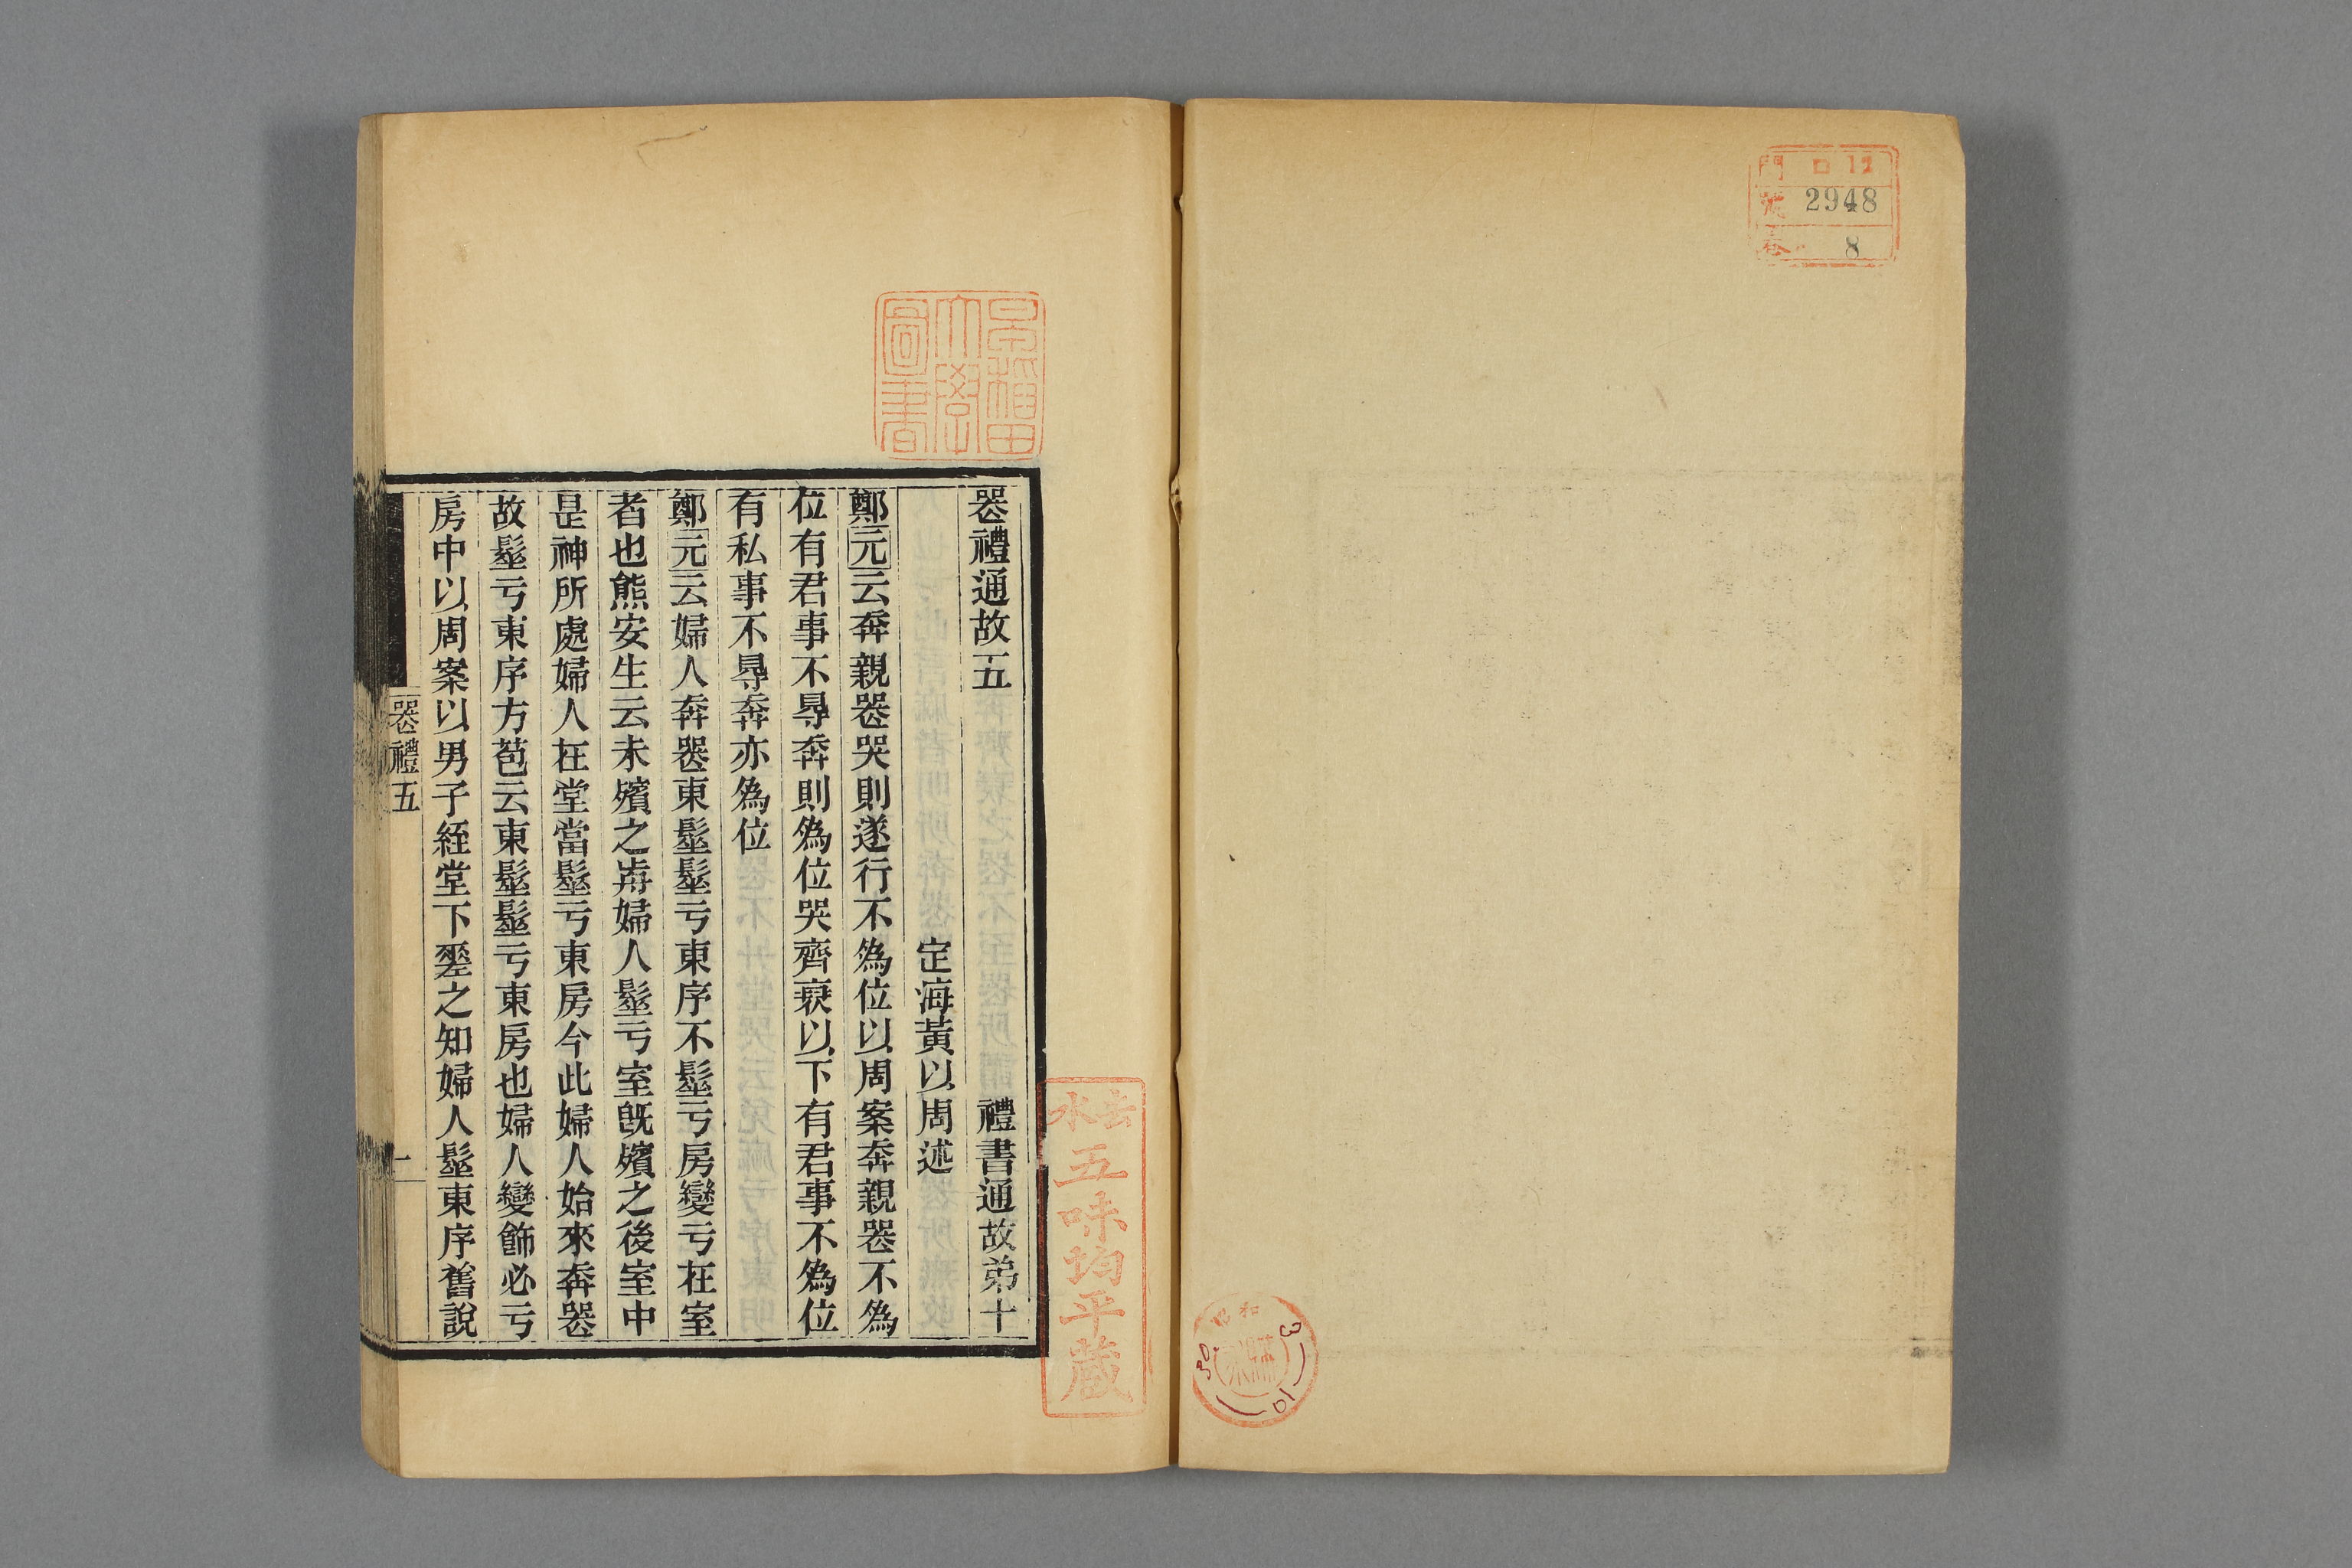 門 口12
號 2948
卷 8
昭和
30
3
10
購求
早稻田
大學
圖書
去水
五味均平蔵
喪禮通故五 禮書通故弟十
定海黃以周述
鄭元云奔親喪哭則遂行不爲位以周案奔親喪不爲
位有君事不㝵奔則爲位哭齊衰以下有君事不爲位
有私事不㝵奔亦爲位
鄭元云婦人奔喪東髽髽亏東序不髽亏房變亏在室
者也熊安生云未殯之歬婦人髽亏室旣殯之後室中
是神所處婦人在堂當髽亏東房今此婦人始來奔喪
故髽亏東序方苞云東髽髽亏東房也婦人變飾必亏
房中以周案以男子絰堂下㘸之知婦人髽東序舊說
喪禮五
一